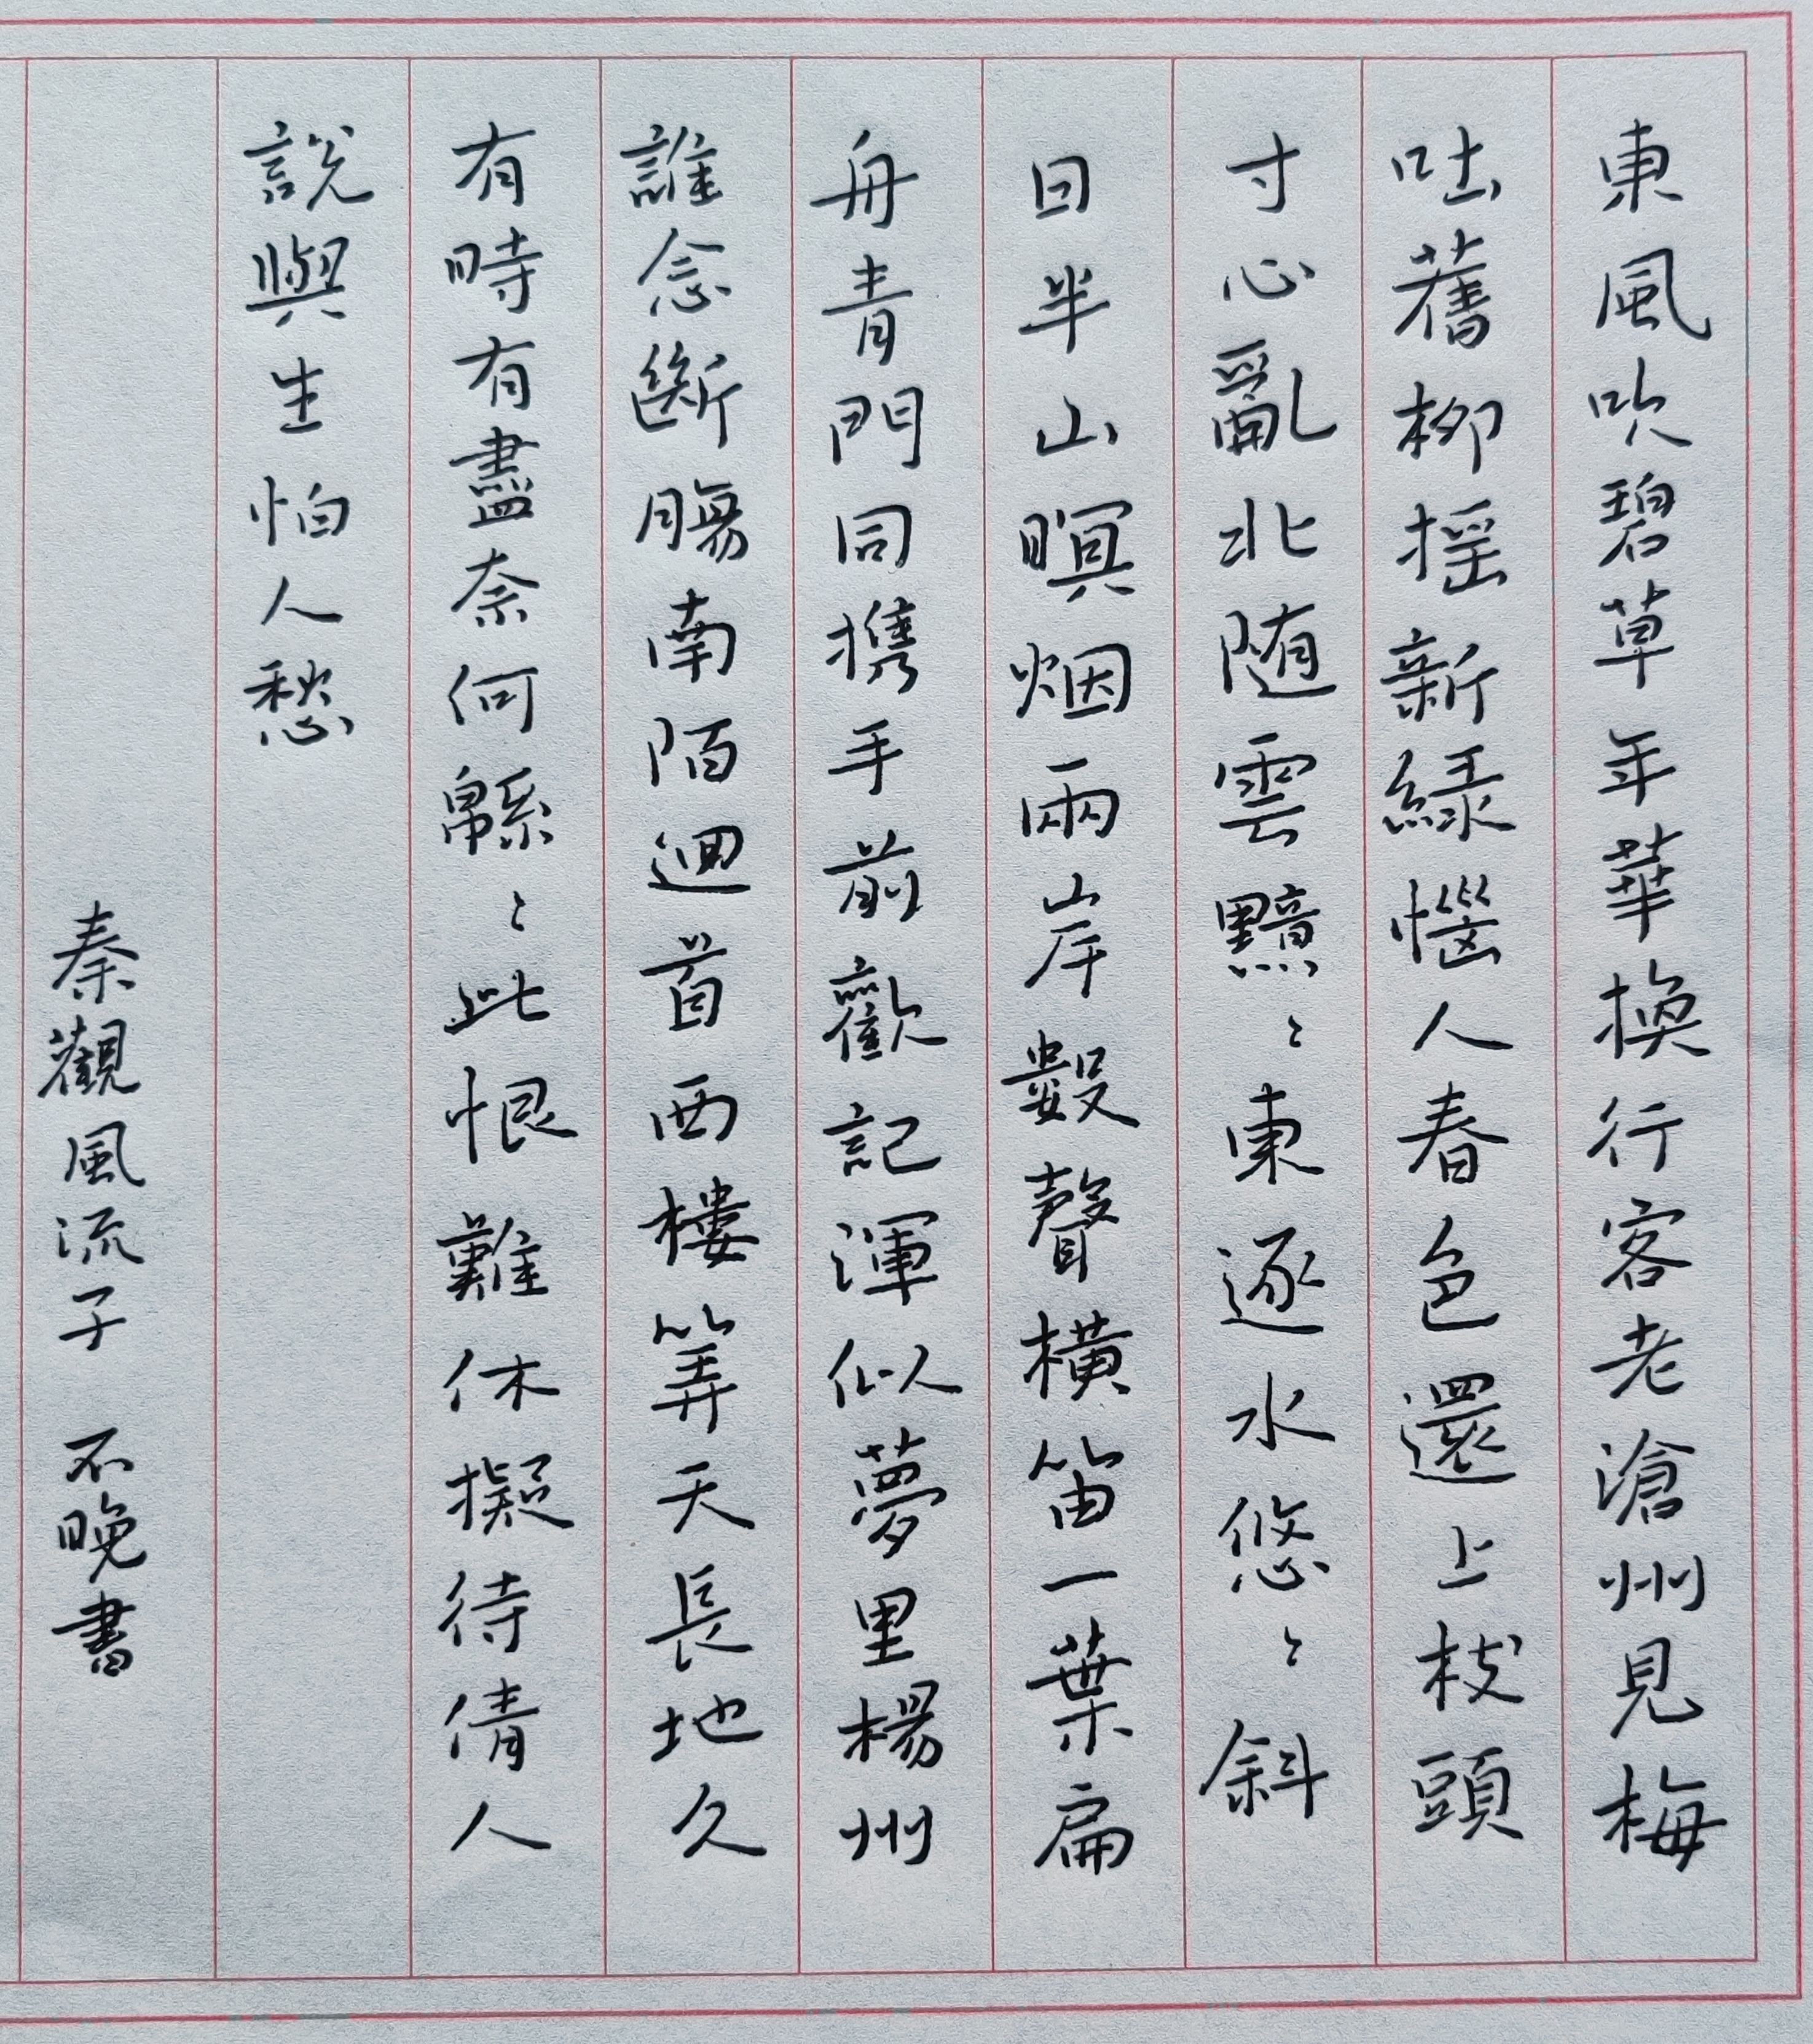 東風吹碧草年華換行客老滄州見梅
吐舊柳摇新綠惱人春色還上枝頭
寸心亂北随雲黯〻東逐水悠〻斜
日半山暝烟兩岸數聲横笛一葉扁
舟青門同携手前歡記渾似夢里楊州
誰念斷腸南陌迴首西樓算天長地久
有時有盡奈何緜〻此恨難休擬待倩人
說與生怕人愁
秦觀風流子 不晚書